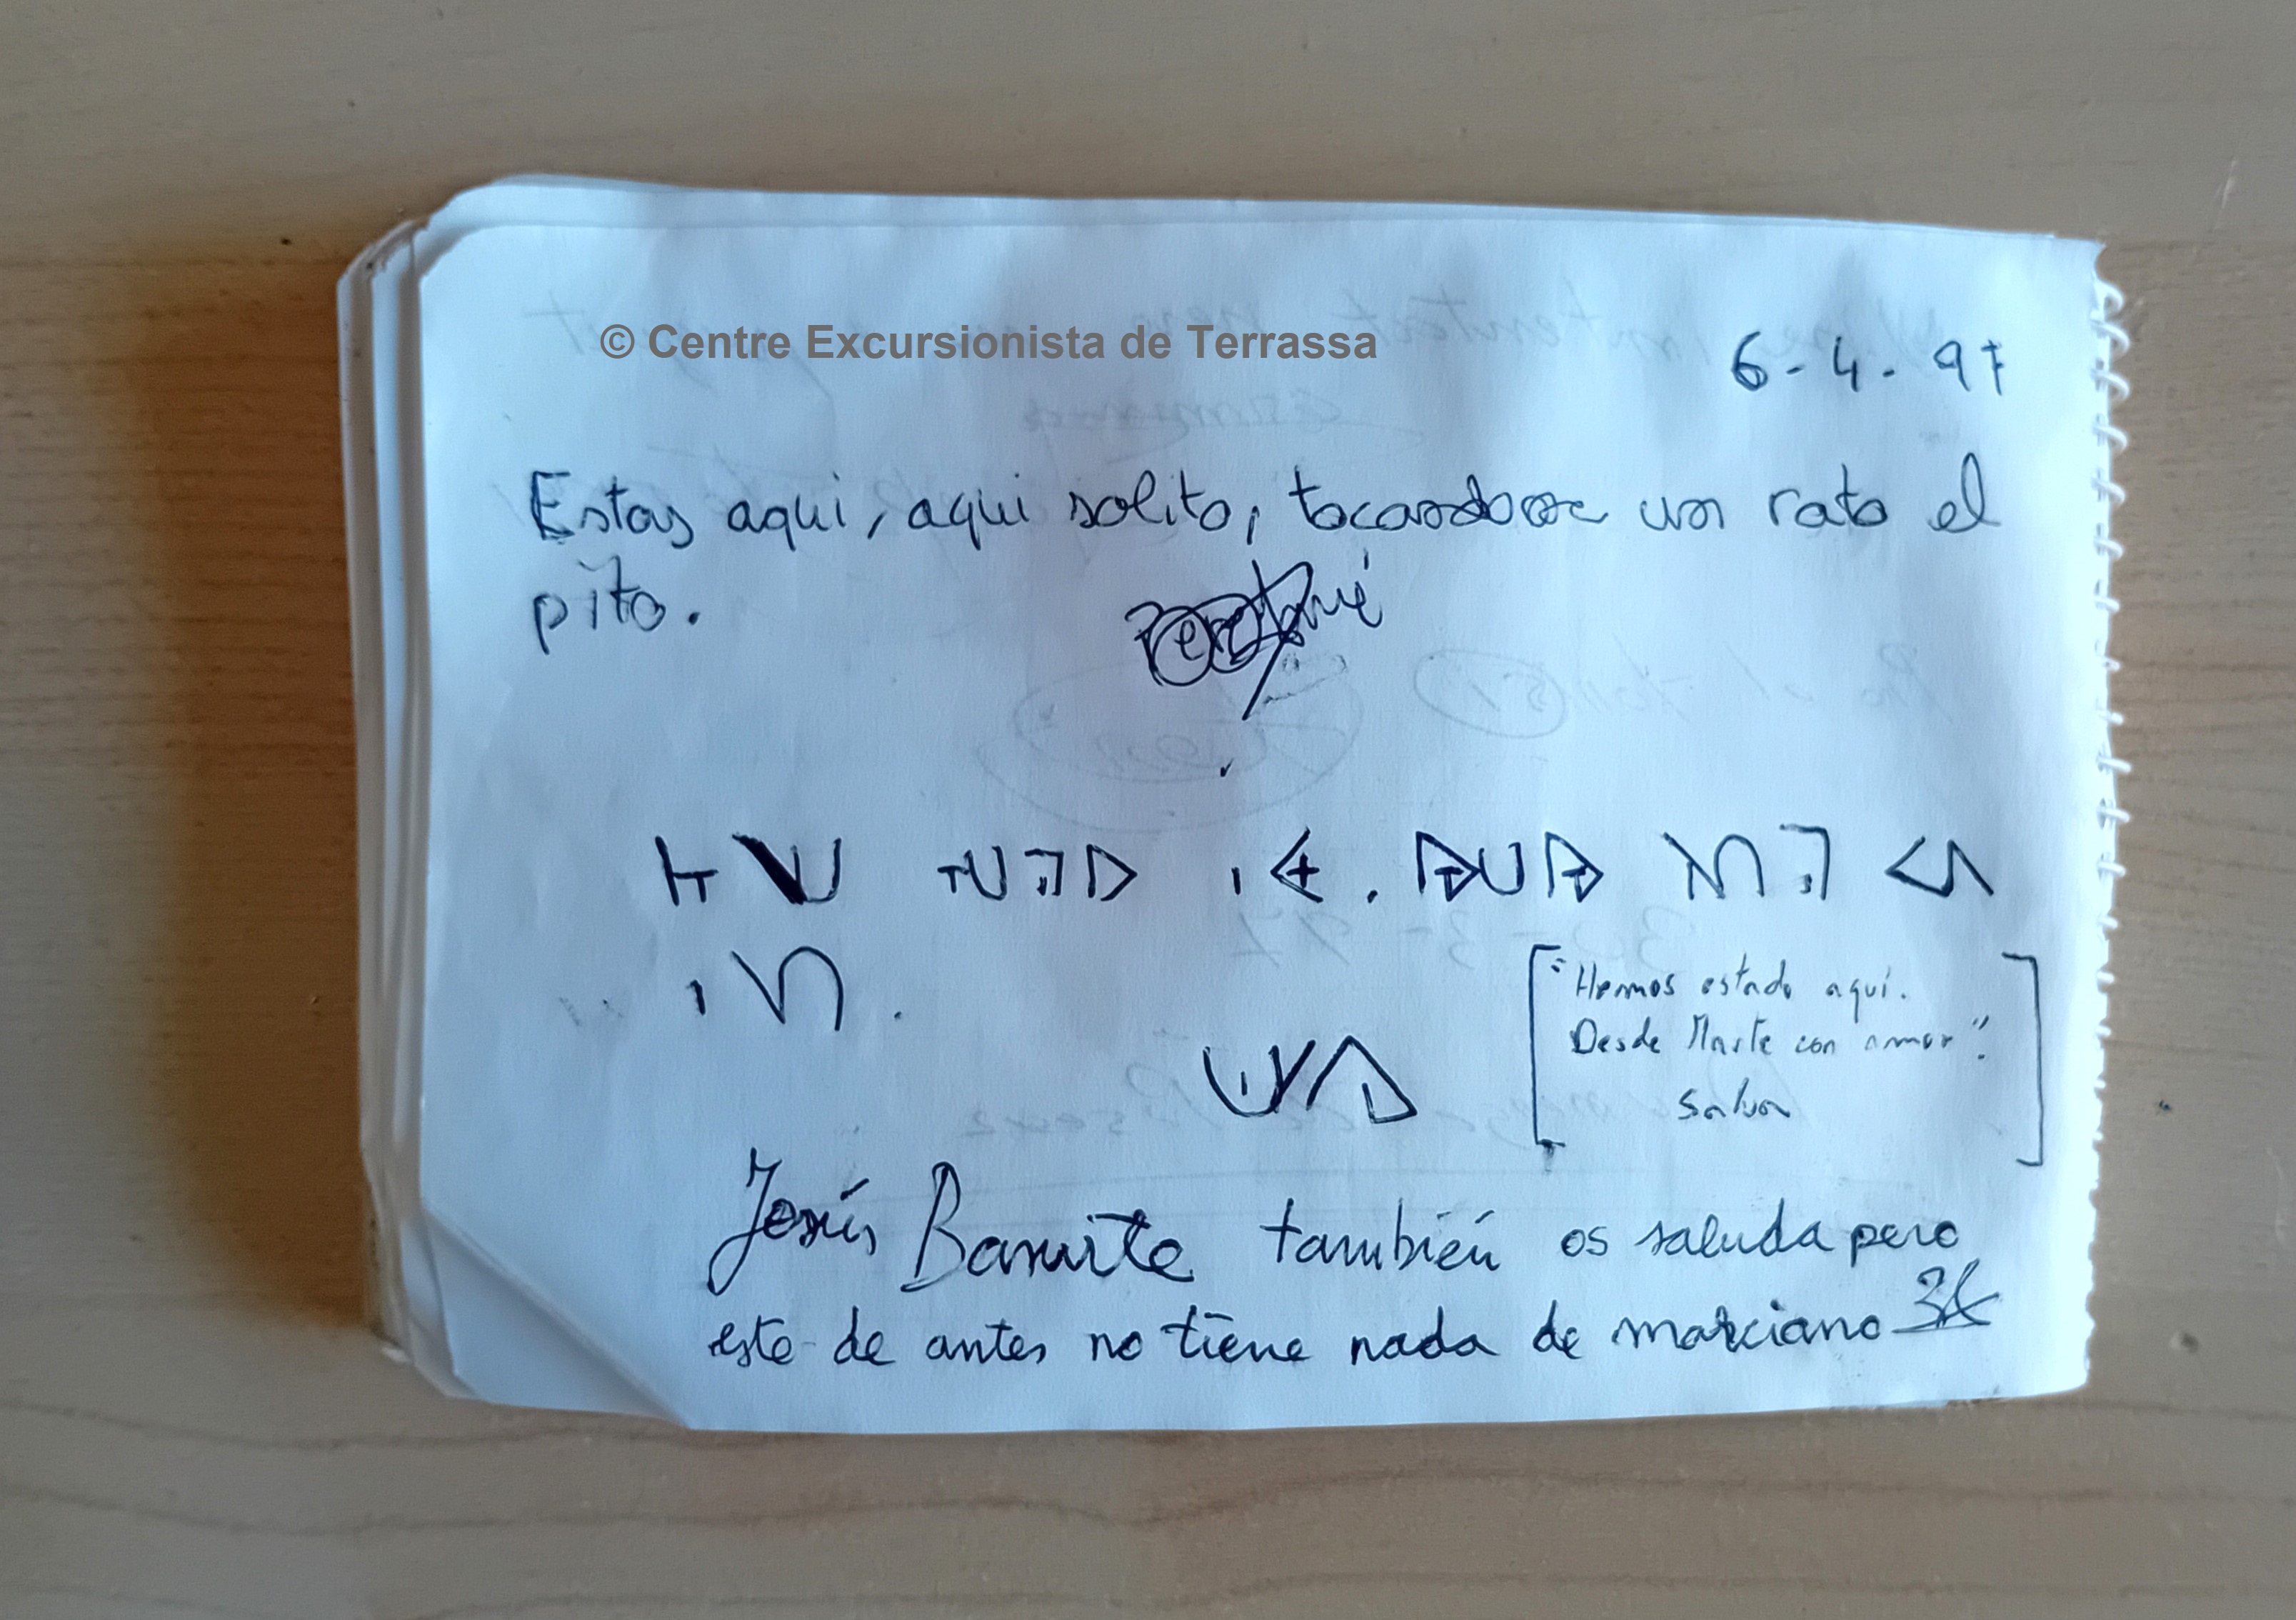 © Centre Excursionista de Terrassa
6-4-97
Estas aqui, aqui solito, tocandose un rato el
pito.
"Hemos estado aquí.
Desde Marte con amor".
Salva
Jesús también os saluda pero
este de antes no tiene nada de marciano